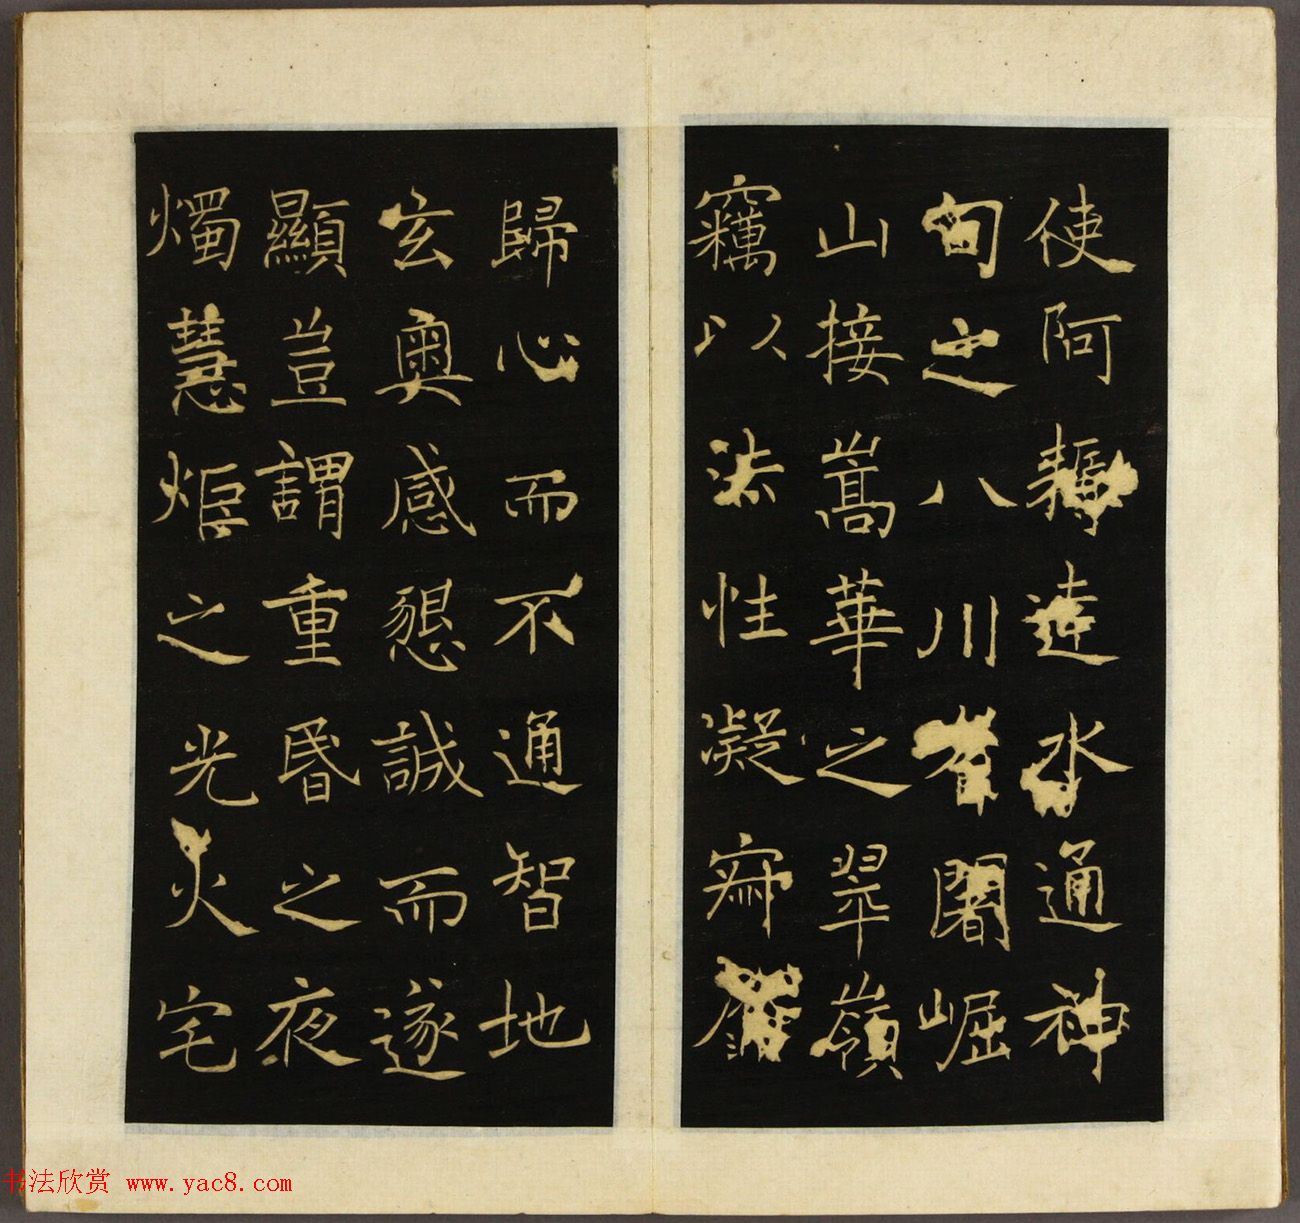 使阿耨達水通神
甸之八川耆闍崛
山接嵩華之翠嶺
竊以法性凝寂靡
歸心而不通智地
玄奧感懇誠而遂
顯豈謂重昏之夜
燭慧炬之光火宅
书法欣赏 www.yac8.com